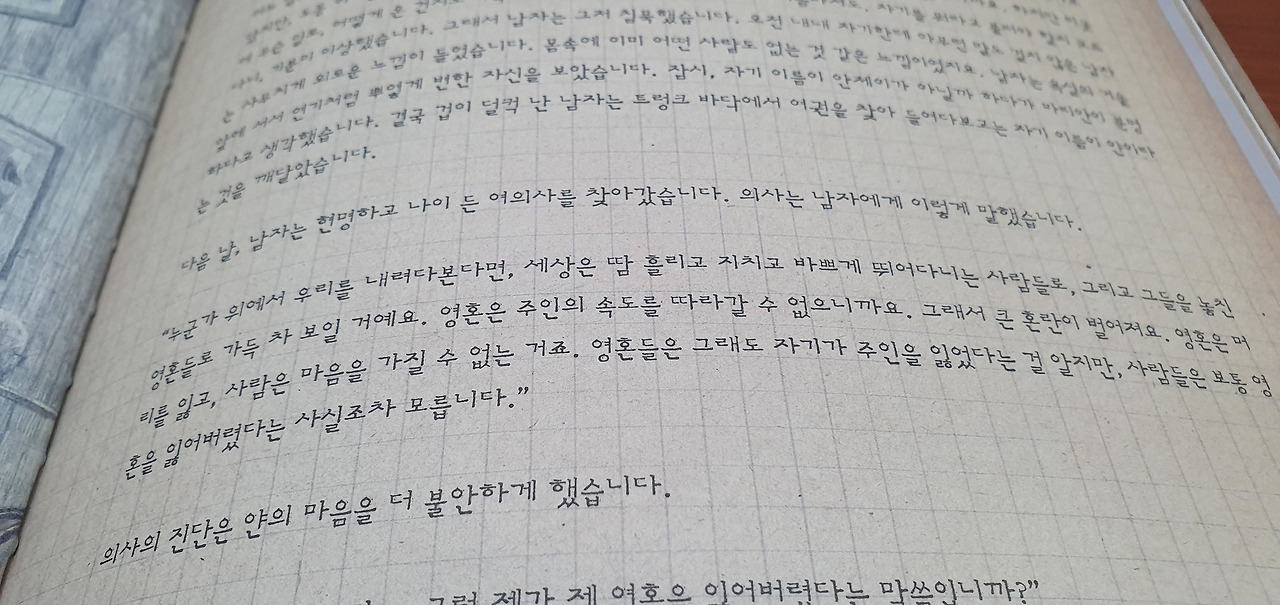 그래서 남자는 그저 침묵했습니다. 오전 내내 자기한테
기분이 이상했습니다. 몸속에 이미 어떤 사람도 없는 것 같은 느낌이었지요. 남자는 욕실의 거울
는 사무치게 외로운 느낌이 들었습니다.
앞에 서서 연기처럼 뿌옇게 변한 자신을 보았습니다. 잠시, 자기 이름이 안제이가 아닐까 하다가 마리안이 분명
하다고 생각했습니다. 결국 겁이 덜컥 난 남자는 트렁크 바닥에서 여권을 찾아 들여다보고는 자기 이름이 얀이라
는 것을 깨달았습니다.
다음 날, 남자는 현명하고 나이 든 여의사를 찾아갔습니다. 의사는 남자에게 이렇게 말했습니다.
“누군가 위에서 우리를 내려다본다면, 세상은 땀 흘리고 지치고 바쁘게 뛰어다니는 사람들로, 그리고 그들을 놓친
영혼들로 가득 차 보일 거예요. 영혼은 주인의 속도를 따라갈 수 없으니까요. 그래서 큰 혼란이 벌어져요. 영혼은 머
리를 잃고, 사람은 마음을 가질 수 없는 거죠. 영혼들은 그래도 자기가 주인을 잃었다는 걸 알지만, 사람들은 보통 영
혼을 잃어버렸다는 사실조차 모릅니다.”
의사의 진단은 얀의 마음을 더 불안하게 했습니다.
제가 제 영혼을 잃어버렸다는 말씀입니까?”